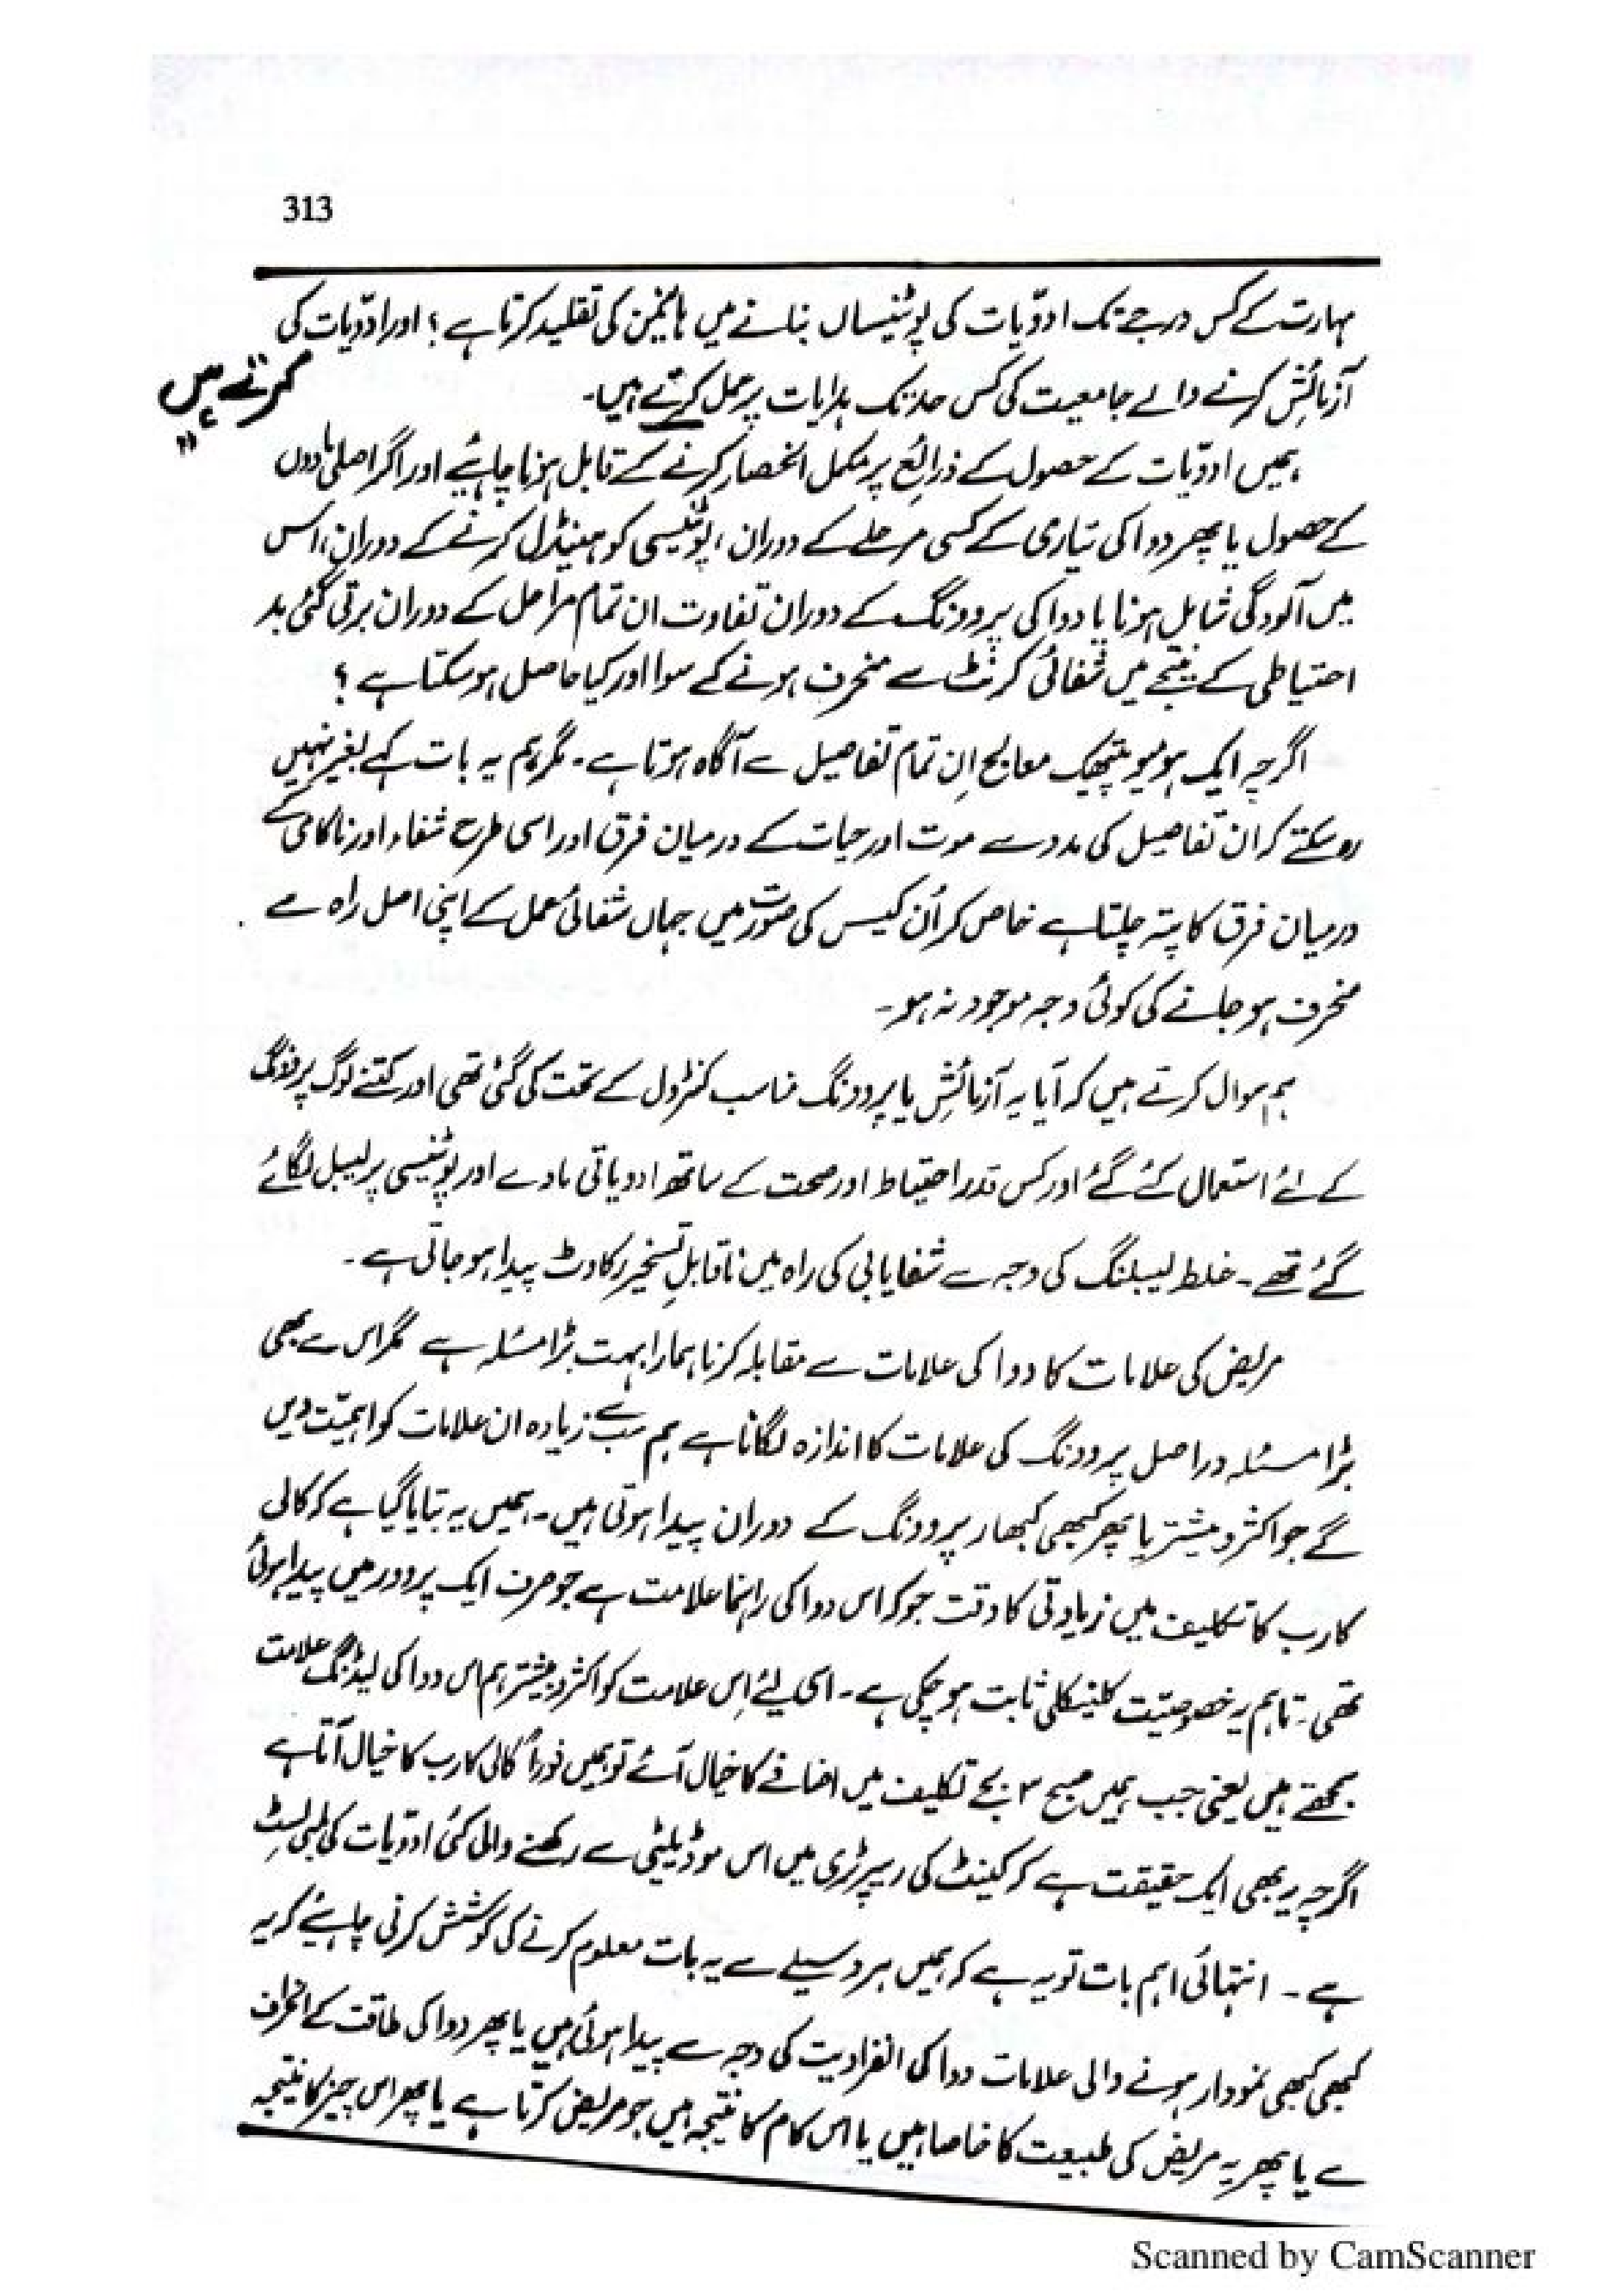 313
مہارت کے کس درجے تک ادوّیات کی پوٹینسیاں بنانے میں ہانیمن کی تقلید کرتا ہے؟ اور ادوّیات کی
آزمائش کرنے والے جامعیت کی کس حد تک ہدایات پر عمل کرتے ہیں۔
کرتے ہیں
ہمیں ادوّیات کے حصول کے ذرائع پر مکمل انحصار کرنے کے قابل ہونا چاہئے اور اگر اصلی مادوں
کے حصول یا پھر دوا کی تیاری کے کسی مرحلے کے دوران، پوٹینسی کو ہینڈل کرنے کے دوران، اس
میں آلودگی شامل ہونا یا دوا کی پروونگ کے دوران تفاوت ان تمام مراحل کے دوران برتی گئی بد
احتیاطی کے نتیجے میں شفائی کرنٹ سے منحرف ہونے کے سوا اور کیا حاصل ہو سکتا ہے؟
اگرچہ ایک ہومیوپیتھیک معالج اِن تمام تفاصیل سے آگاہ ہوتا ہے۔ مگر ہم یہ بات کہے بغیر نہیں
رہ سکتے کہ ان تفاصیل کی مدد سے موت اور حیات کے درمیان فرق اور اسی طرح شفاء اور ناکامی کے
درمیان فرق کا پتہ چلتا ہے خاص کر اُن کیس کی صورت میں جہاں شفائی عمل کے اپنی اصل راہ سے
منحرف ہو جانے کی کوئی وجہ موجود نہ ہو۔
ہم سوال کرتے ہیں کہ آیا یہ آزمائش یا پروونگ مناسب کنٹرول کے تحت کی گئی تھی اور کتنے لوگ پروونگ
کے لئے استعمال کئے گئے اور کس قدر احتیاط اور صحت کے ساتھ ادویاتی مادے اور پوٹینسی پر لیبل لگائے
گئے تھے۔ غلط لیبلنگ کی وجہ سے شفایابی کی راہ میں ناقابلِ تسخیر رکاوٹ پیدا ہو جاتی ہے۔
مریض کی علامات کا دوا کی علامات سے مقابلہ کرنا ہمارا بہت بڑا مسئلہ ہے مگر اس سے بھی
بڑا مسئلہ دراصل پروونگ کی علامات کا اندازہ لگانا ہے ہم سب سے زیادہ ان علامات کو اہمیّت دیں
گے جو اکثر و بیشتر یا پھر کبھی کبھار پروونگ کے دوران پیدا ہوتی ہیں۔ ہمیں یہ بتایا گیا ہے کہ کالی
کارب کا تکلیف میں زیادتی کا وقت جو کہ اس دوا کی راہنما علامت ہے جو صرف ایک پروور میں پیدا ہوئی
تھی۔ تاہم یہ خصوصیّت کلنیکلی ثابت ہو چکی ہے۔ اسی لئے اِس علامت کو اکثر و بیشتر ہم اس دوا کی لیڈنگ علامت
سمجھتے ہیں یعنی جب ہمیں صبح ۳ بجے تکلیف میں اضافے کا خیال آئے تو ہمیں فوراً کالی کارب کا خیال آتا ہے
اگرچہ یہ بھی ایک حقیقت ہے کہ کینٹ کی ریپرٹری میں اس موڈیلیٹی سے رکھنے والی کئی ادوّیات کی لمبی لسٹ
ہے۔ انتہائی اہم بات تو یہ ہے کہ ہمیں ہر وسیلے سے یہ بات معلوم کرنے کی کوشش کرنی چاہیئے کہ یہ
کبھی کبھی نمودار ہونے والی علامات دوا کی انفرادیت کی وجہ سے پیدا ہوئی ہیں یا پھر دوا کی طاقت کے انحراف
سے یا پھر یہ مریض کی طبیعت کا خاصا ہیں یا اس کام کا نتیجہ ہیں جو مریض کرتا ہے یا پھر اس چیز کا نتیجہ
Scanned by CamScanner